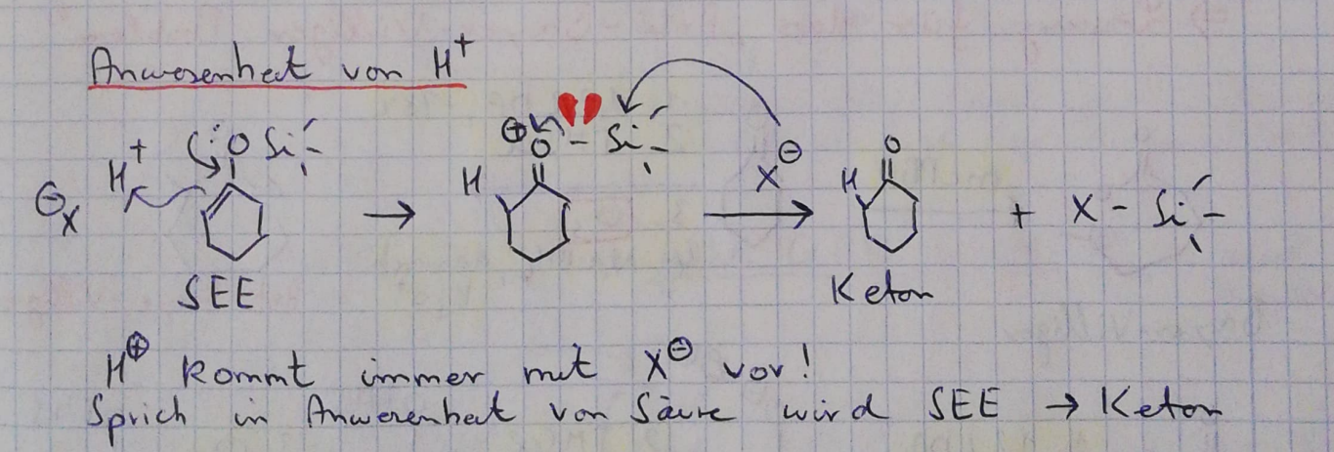 Anwesenheit von H⁺
⊖X H⁺ :O Si → H ⊕O - Si X⊖ → H O + X - Si
SEE Keton
H⊕ kommt immer mit X⊖ vor!
Sprich in Anwesenheit von Säure wird SEE → Keton